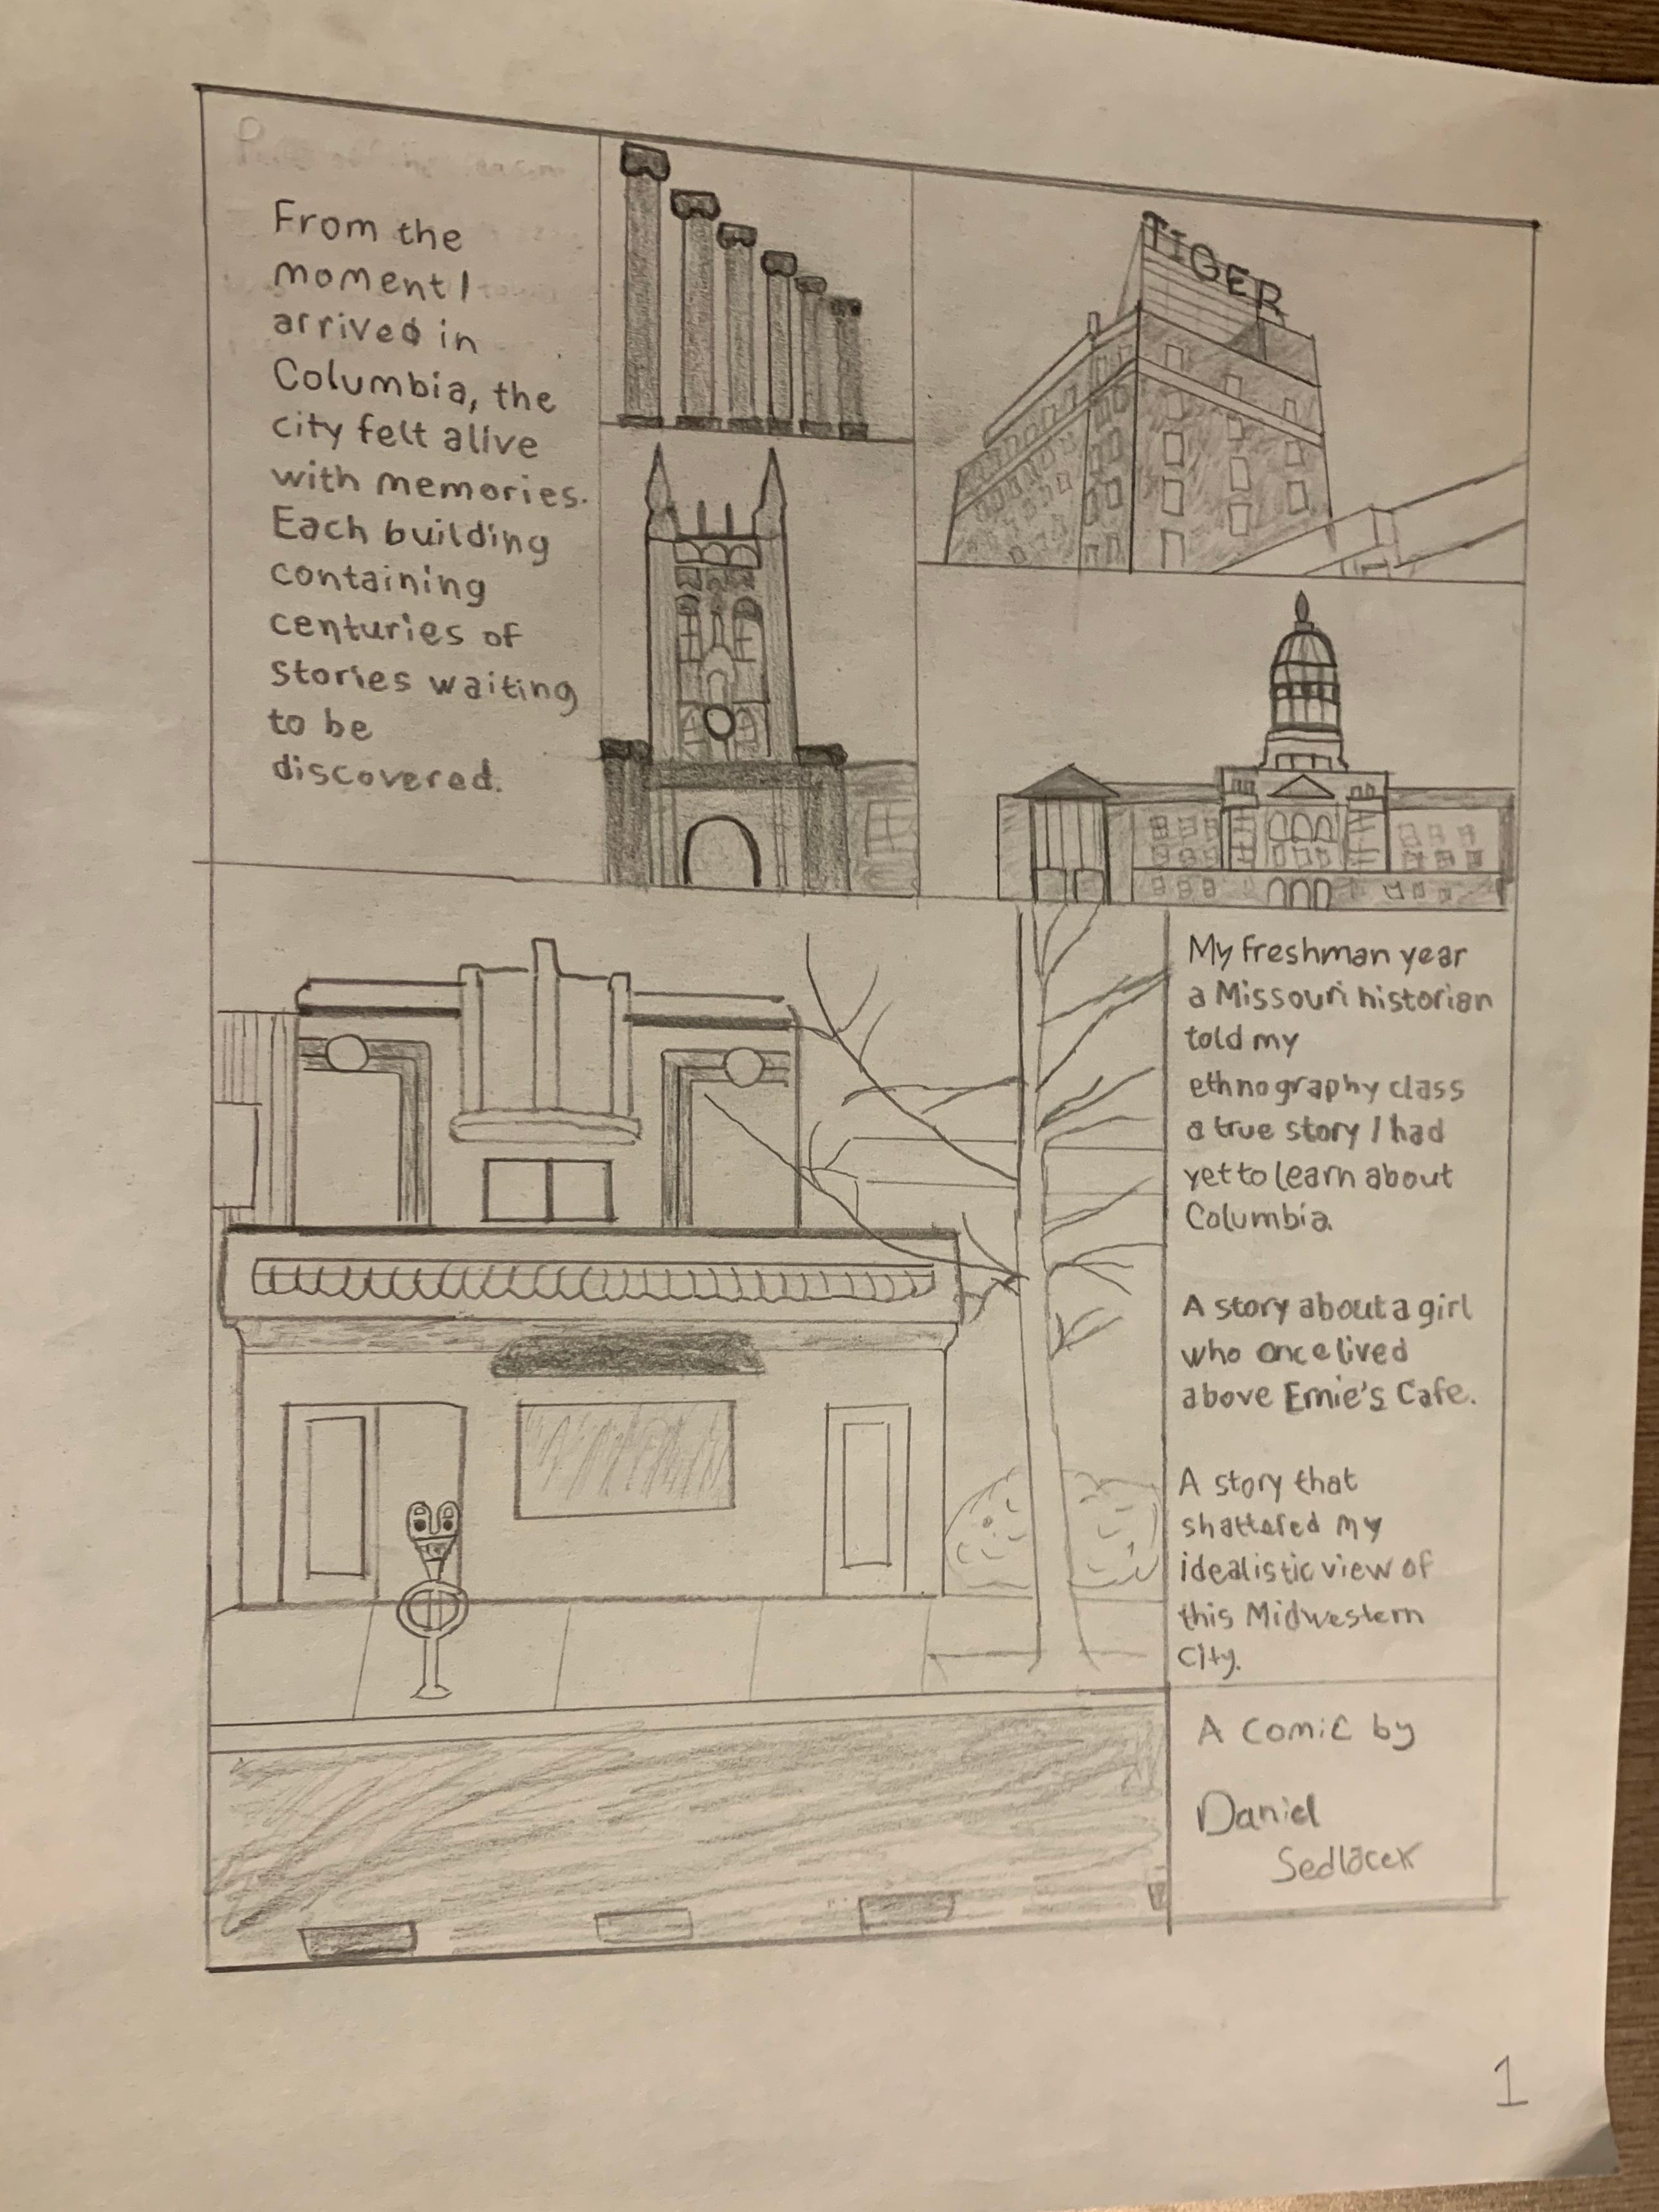 From the
moment I
arrived in
Columbia, the
city felt alive
with memories.
Each building
containing
centuries of
stories waiting
to be
discovered.
TIGER
My freshman year
a Missouri historian
told my
ethnography class
a true story I had
yet to learn about
Columbia.
A story about a girl
who once lived
above Ernie's Cafe.
A story that
shattered my
idealistic view of
this Midwestern
City.
A comic by
Daniel
Sedlacek
1